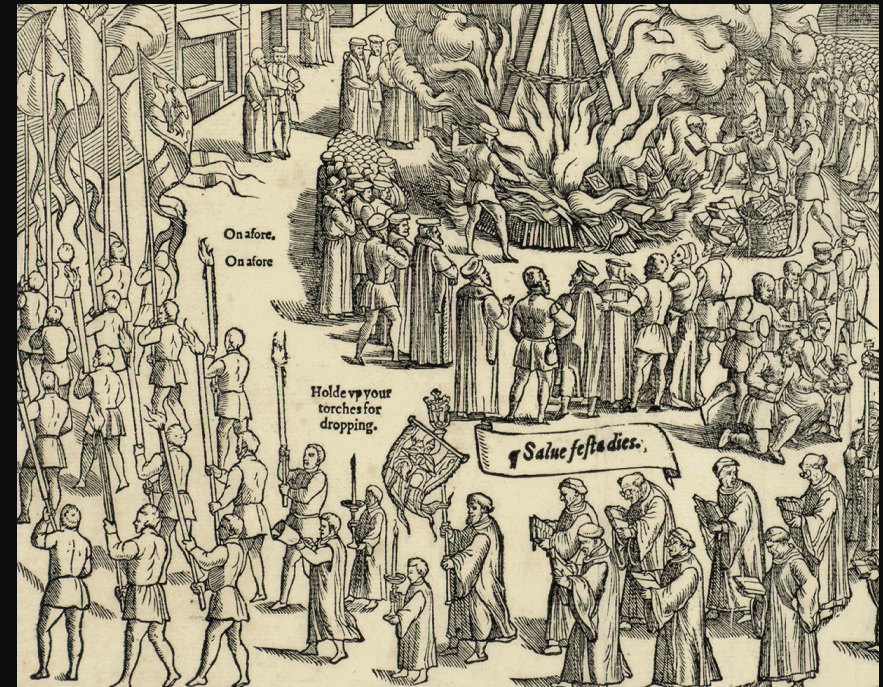 On afore.
On afore
Holde vp your
torches for
dropping.
¶ Salue festa dies.